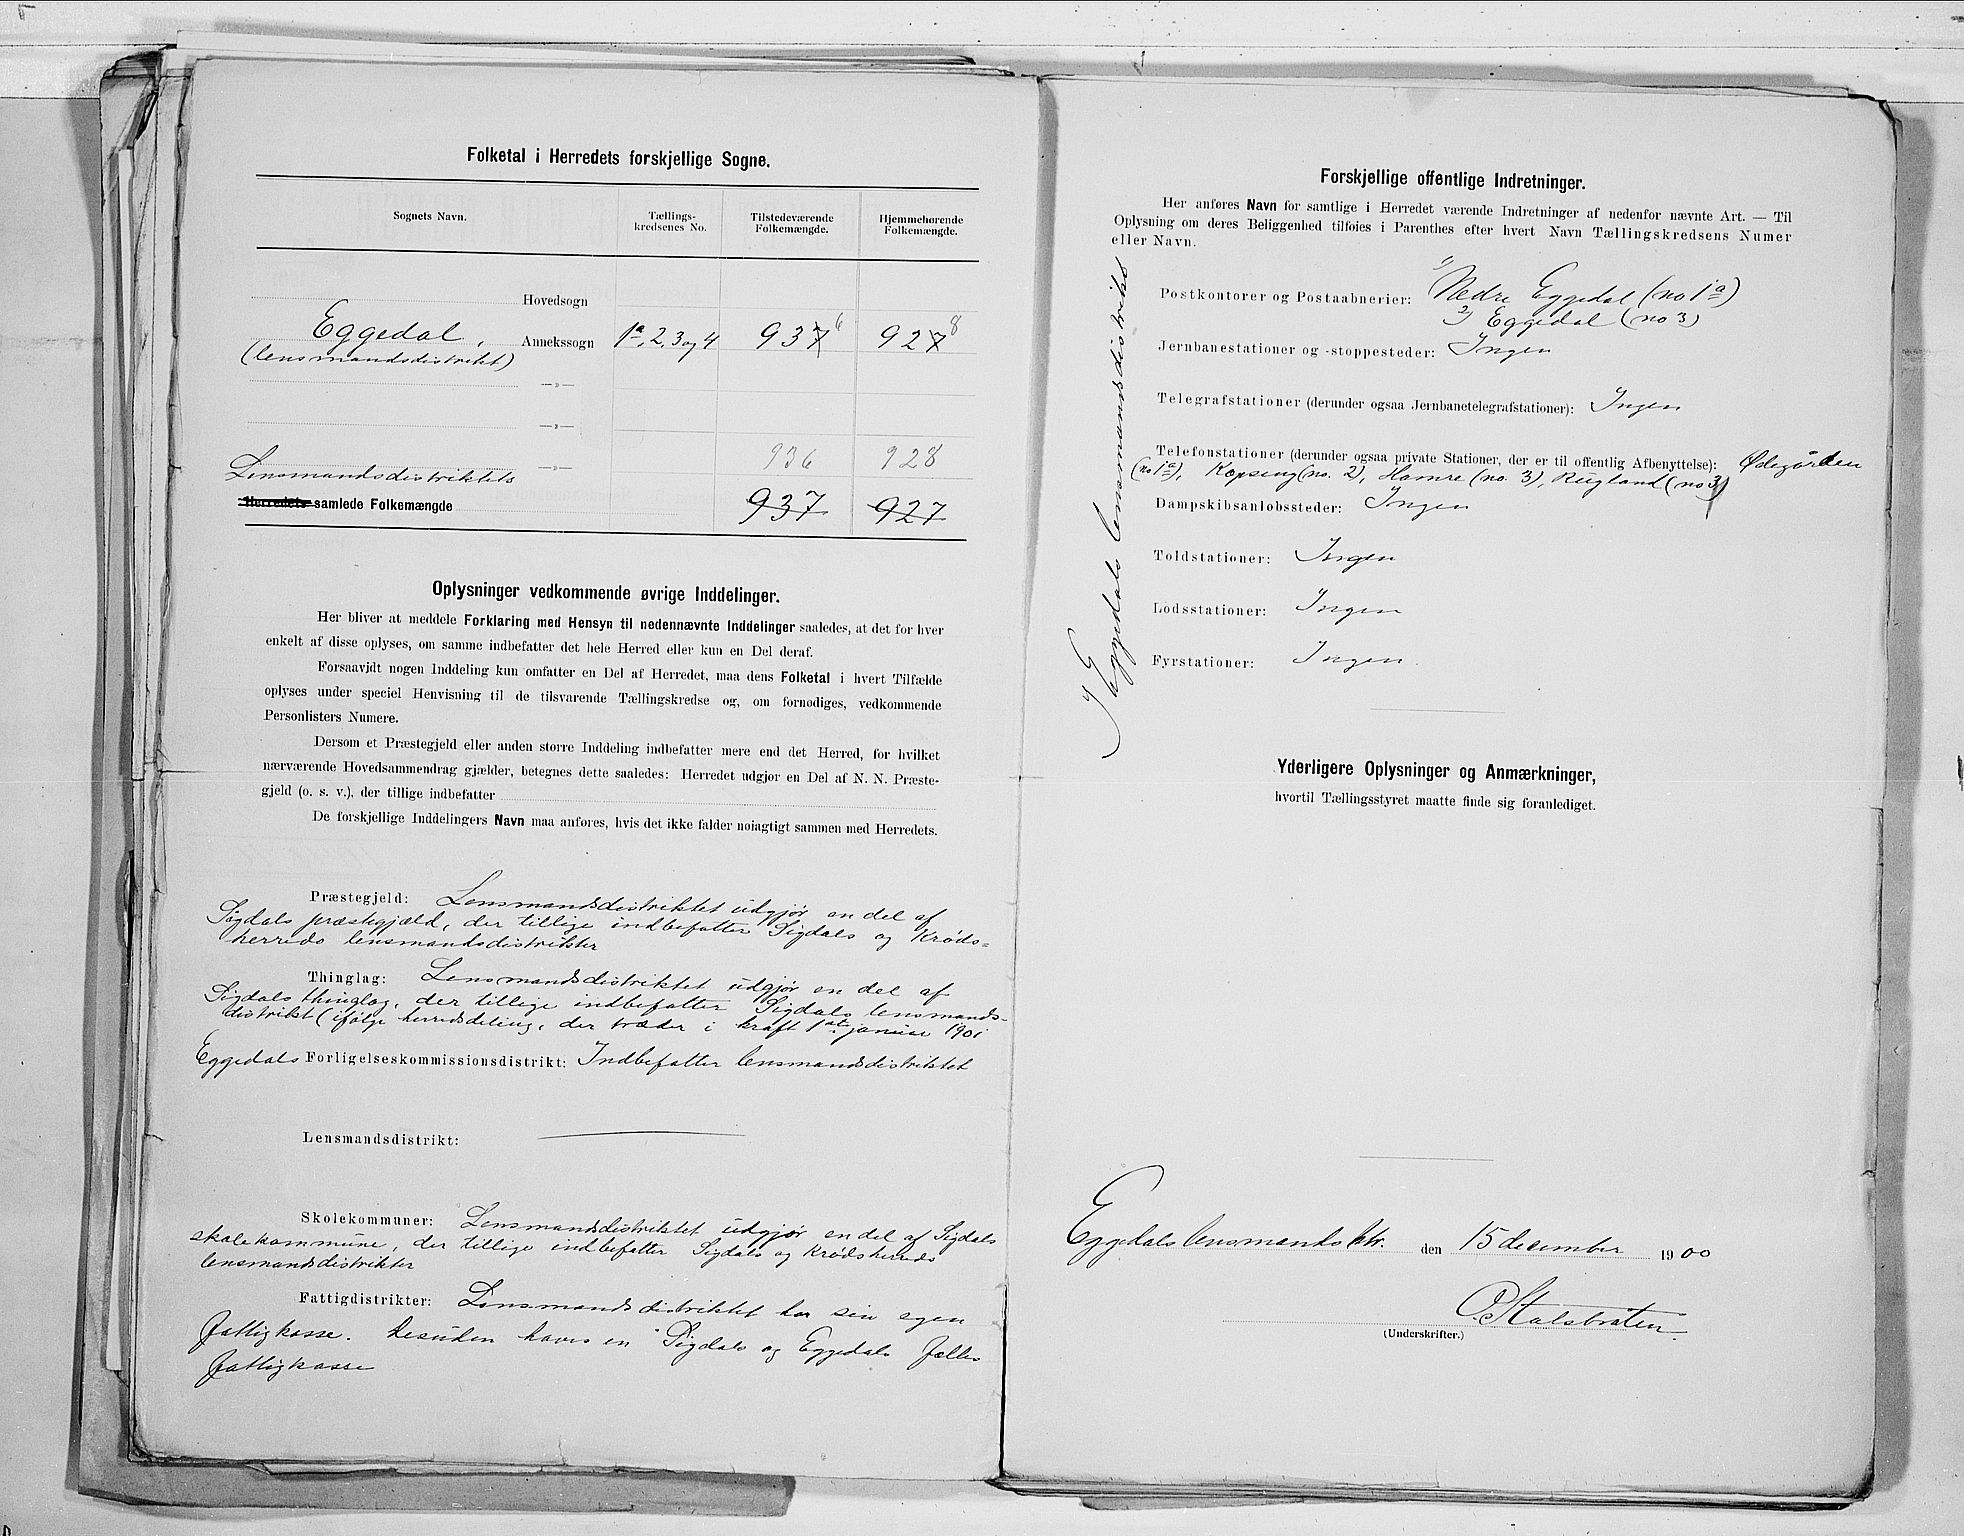 Folketal i Herredets forskjellige Sogne.
Sognets Navn.
Tællings-
kredsenes No.
Tilstedeværende
Folkemængde.
Hjemmehørende
Folkemængde.
Hovedsogn
Eggedal, Annekssogn 1a, 2, 3 og 4 937 6 927 8
(lensmandsdistrikt)
—»—
—»—
—»— 936 928
Lensmandsdistriktets
Herredets samlede Folkemængde 937 927
Oplysninger vedkommende øvrige Inddelinger.
Her bliver at meddele Forklaring med Hensyn til nedennævnte Inddelinger saaledes, at det for hver
enkelt af disse oplyses, om samme indbefatter det hele Herred eller kun en Del deraf.
Forsaavidt nogen Inddeling kun omfatter en Del af Herredet, maa dens Folketal i hvert Tilfælde
oplyses under speciel Henvisning til de tilsvarende Tællingskredse og, om fornødiges, vedkommende
Personlisters Numere.
Dersom et Præstegjeld eller anden større Inddeling indbefatter mere end det Herred, for hvilket
nærværende Hovedsammendrag gjælder, betegnes dette saaledes: Herredet udgjør en Del af N. N. Præste-
gjeld (o. s. v.), der tillige indbefatter
De forskjellige Inddelingers Navn maa anføres, hvis det ikke falder nøiagtigt sammen med Herredets.
Præstegjeld: Lensmandsdistriktet udgjør en del af
Sigdals præstegjæld, der tillige indbefatter Sigdals og Krøds=
herreds lensmandsdistrikter
Thinglag: Lensmandsdistriktet udgjør en del af
Sigdals thinglag, der tillige indbefatter Sigdals lensmands-
distrikt (ifølge herredsdeling, der træder i kraft 1ste januar 1901
Eggedals Forligelseskommissionsdistrikt: Indbefatter lensmandsdistriktet
Lensmandsdistrikt:
Skolekommuner: Lensmandsdistriktet udgjør en del af Sigdals
skolekommune, der tillige indbefatter Sigdals og Krødsherreds
lensmandsdistrikter
Fattigdistrikter: Lensmandsdistriktet har sin egen
fattigkasse. Desuden haves en Sigdals og Eggedals fælles
fattigkasse
Forskjellige offentlige Indretninger.
Her anføres Navn for samtlige i Herredet værende Indretninger af nedenfor nævnte Art. — Til
Oplysning om deres Beliggenhed tilføies i Parenthes efter hvert Navn Tællingskredsens Numer
eller Navn.
I Eggedals lensmandsdistrikt
Postkontorer og Postaabnerier: 1) Nedre Eggedal (no 1a)
2) Eggedal (no 3)
Jernbanestationer og -stoppesteder: Ingen
Telegrafstationer (derunder ogsaa Jernbanetelegrafstationer): Ingen
Telefonstationer (derunder ogsaa private Stationer, der er til offentlig Afbenyttelse): Ødegården
(no 1a), Kopseng (no. 2), Hamre (no. 3), Rugland (no 3)
Dampskibsanløbssteder: Ingen
Toldstationer: Ingen
Lodsstationer: Ingen
Fyrstationer: Ingen.
Yderligere Oplysninger og Anmærkninger,
hvortil Tællingsstyret maatte finde sig foranlediget.
Eggedals lensmandsktr. den 15 december 1900
O. Stalsbråten.
(Underskrifter.)